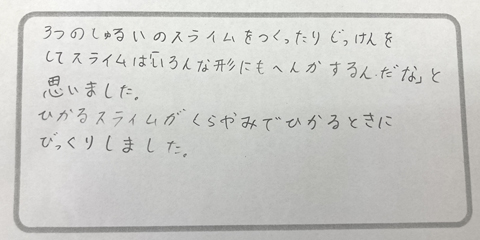 3つのしゅるいのスライムをつくったりじっけんを
してスライムは「いろんな形にもへんかするんだな」と
思いました。
ひかるスライムがくらやみでひかるときに
びっくりしました。